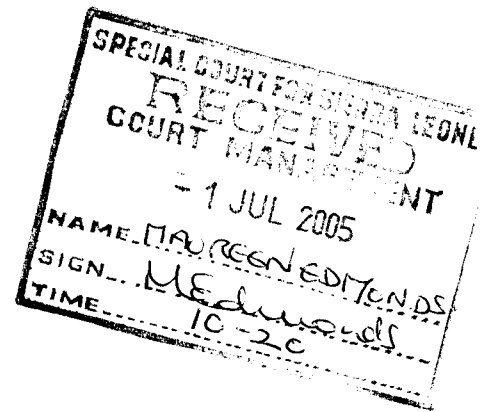 SPECIAL COURT FOR SIERRA LEONE
RECEIVED
COURT MANAGEMENT
- 1 JUL 2005
NAME MAUREEN EDMONDS
SIGN MEdmonds
TIME 10-20